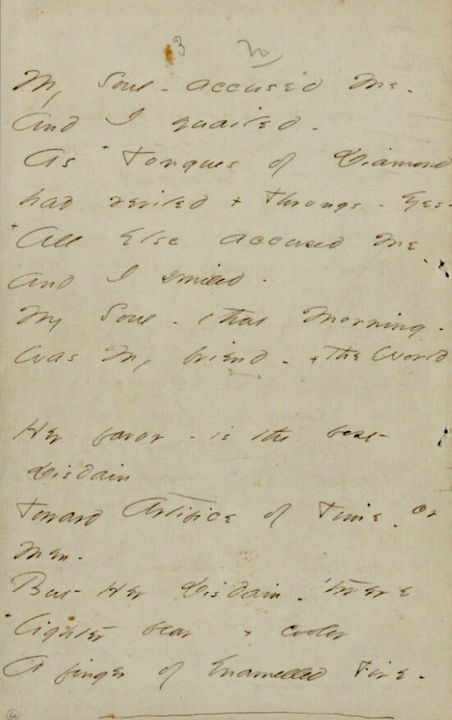 3
My Soul - accused Me -
And I quailed -
As + Tongues of Diamond
had reviled + Throngs - Eyes -
+ All Else accused Me
and I smiled -
My Soul - that Morning -
was My friend - + The World
Her favor - is the best
Disdain
Toward Artifice of Time - or
Men -
But Her Disdain - 'twere
+ lighter bear + cooler
A finger of Enamelled Fire -